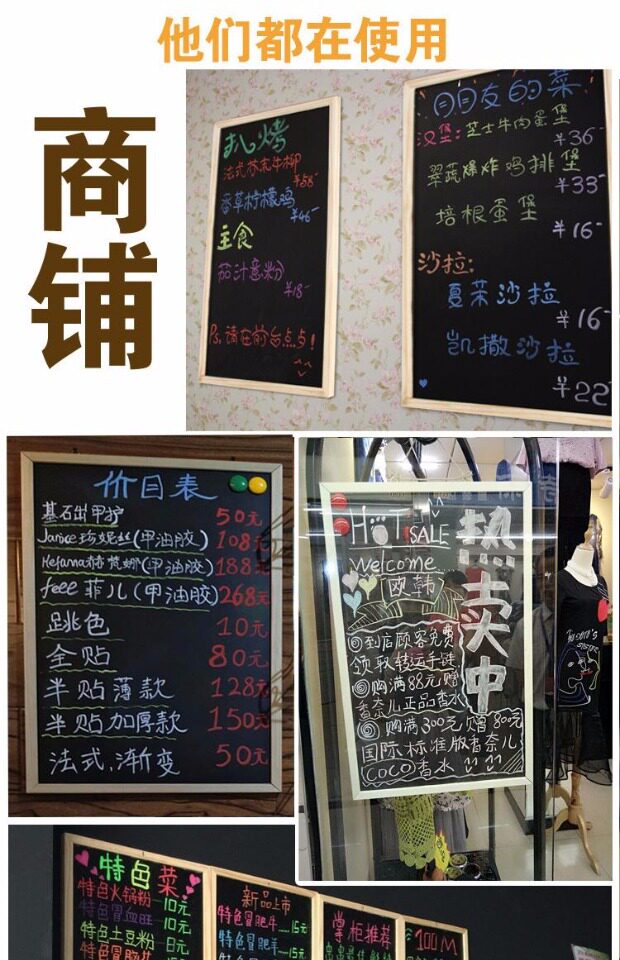 他们都在使用
商铺
扒烤
法式芥末牛柳
¥58-
香草柠檬鸡
¥46-
主食
茄汁意粉
¥18-
Ps,请在前台点与!
朋友的菜
汉堡:芝士牛肉蛋堡
¥36-
翠蔬爆炸鸡排堡
¥33-
培根蛋堡
¥16-
沙拉:
夏菜沙拉
¥16-
凯撒沙拉
¥22
价目表
基础护 50元
Janice (甲油胶) 108元
(甲油胶) 188元
feee 菲儿(甲油胶) 268元
跳色 10元
全贴 80元
半贴薄款 128元
半贴加厚款 150元
法式,渐变 50元
HOT SALE
热卖中
Welcome
[欧韩]
①到店顾客免费
领取转运手链
②购满88元赠
香奈儿正品香水
③购满300元赠800元
国际标准版香奈儿
COCO香水
特色菜
特色火锅粉—10元
特色冒血旺—10元
特色土豆粉—8元
新品上市
特色冒肥牛—15元
特色冒肥羊—15元
掌柜推荐
100M